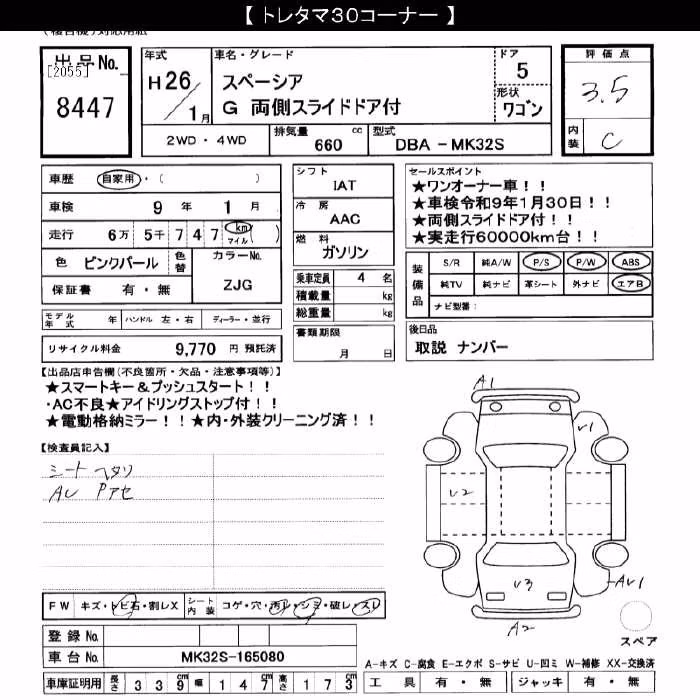 【 トレタマ30コーナー 】
出品No.
[2055]
8447
年式
H26/1月
車名・グレード
スペーシア
G 両側スライドドア付
ドア
5
形状
ワゴン
評価点
3.5
内装
C
2WD・4WD
排気量 660 cc
型式 DBA-MK32S
車歴 自家用・( )
車検 9年 1月
走行 6万 5千 7 4 7 km マイル ( )
色 ピンクパール 色替
カラーNo. ZJG
保証書 有・無
モデル年式 年 ハンドル 左・右 ディーラー・並行
リサイクル料金 9,770 円 預託済
シフト
IAT
冷房
AAC
燃料
ガソリン
乗車定員 4 名
積載量 kg
総重量 kg
書類期限
月 日
セールスポイント
★ワンオーナー車!!
★車検令和9年1月30日!!
★両側スライドドア付!!
★実走行60000km台!!
装備品
S/R 純A/W P/S P/W ABS
純TV 純ナビ 革シート 外ナビ エアB
ナビ型番:
後日品
取説 ナンバー
【出品店申告欄(不良箇所・欠品・注意事項等)】
★スマートキー&プッシュスタート!!
・AC不良★アイドリングストップ付!!
★電動格納ミラー!!★内・外装クリーニング済!!
【検査員記入】
シート ヘタリ
AU Pアセ
FW キズ・トビ石・割レX
シート内装 コゲ・穴・汚レ・シミ・破レ・スレ
登録No.
車台No. MK32S-165080
車庫証明用 長さ 339cm 幅 147cm 高さ 173cm
A1
U1
U2
U3
AU1
A2
スペア
A-キズ C-腐食 E-エクボ S-サビ U-凹ミ W-補修 XX-交換済
工具 有・無 ジャッキ 有・無